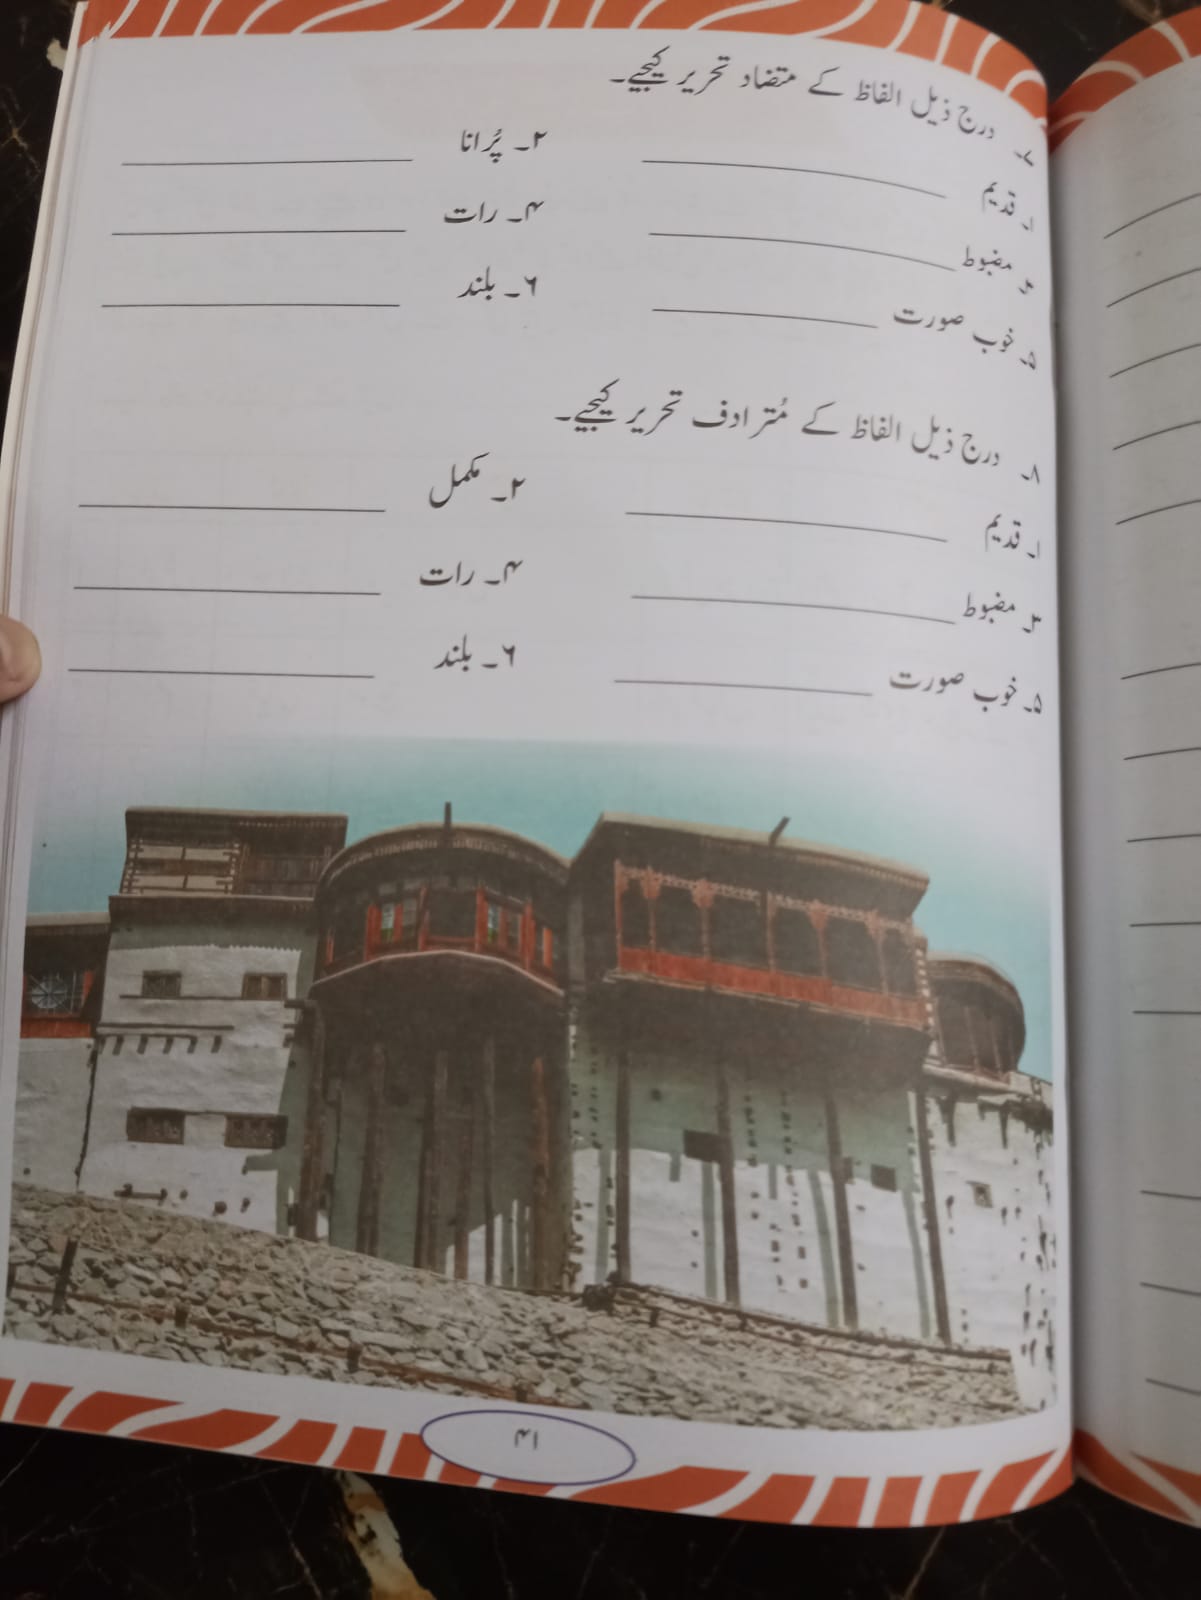 ۷۔ درج ذیل الفاظ کے متضاد تحریر کیجیے۔
۱۔ قدیم ۲۔ پُرانا
۳۔ مضبوط ۴۔ رات
۵۔ خوب صورت ۶۔ بلند
۸۔ درج ذیل الفاظ کے مُترادف تحریر کیجیے۔
۱۔ قدیم ۲۔ مکمل
۳۔ مضبوط ۴۔ رات
۵۔ خوب صورت ۶۔ بلند
۴۱